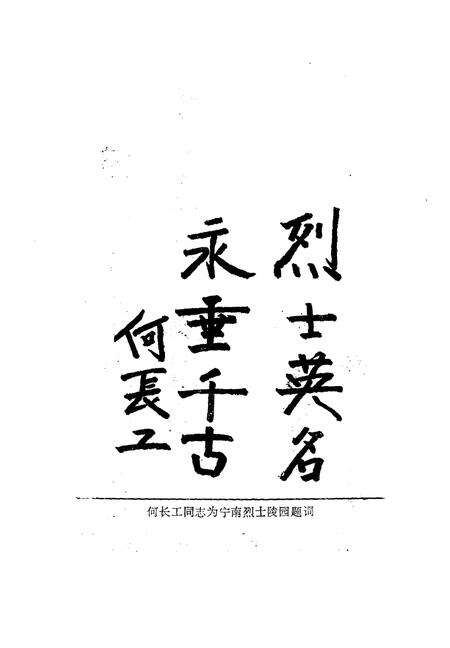 烈士英名
永垂千古
何長工
何长工同志为宁南烈士陵园题词